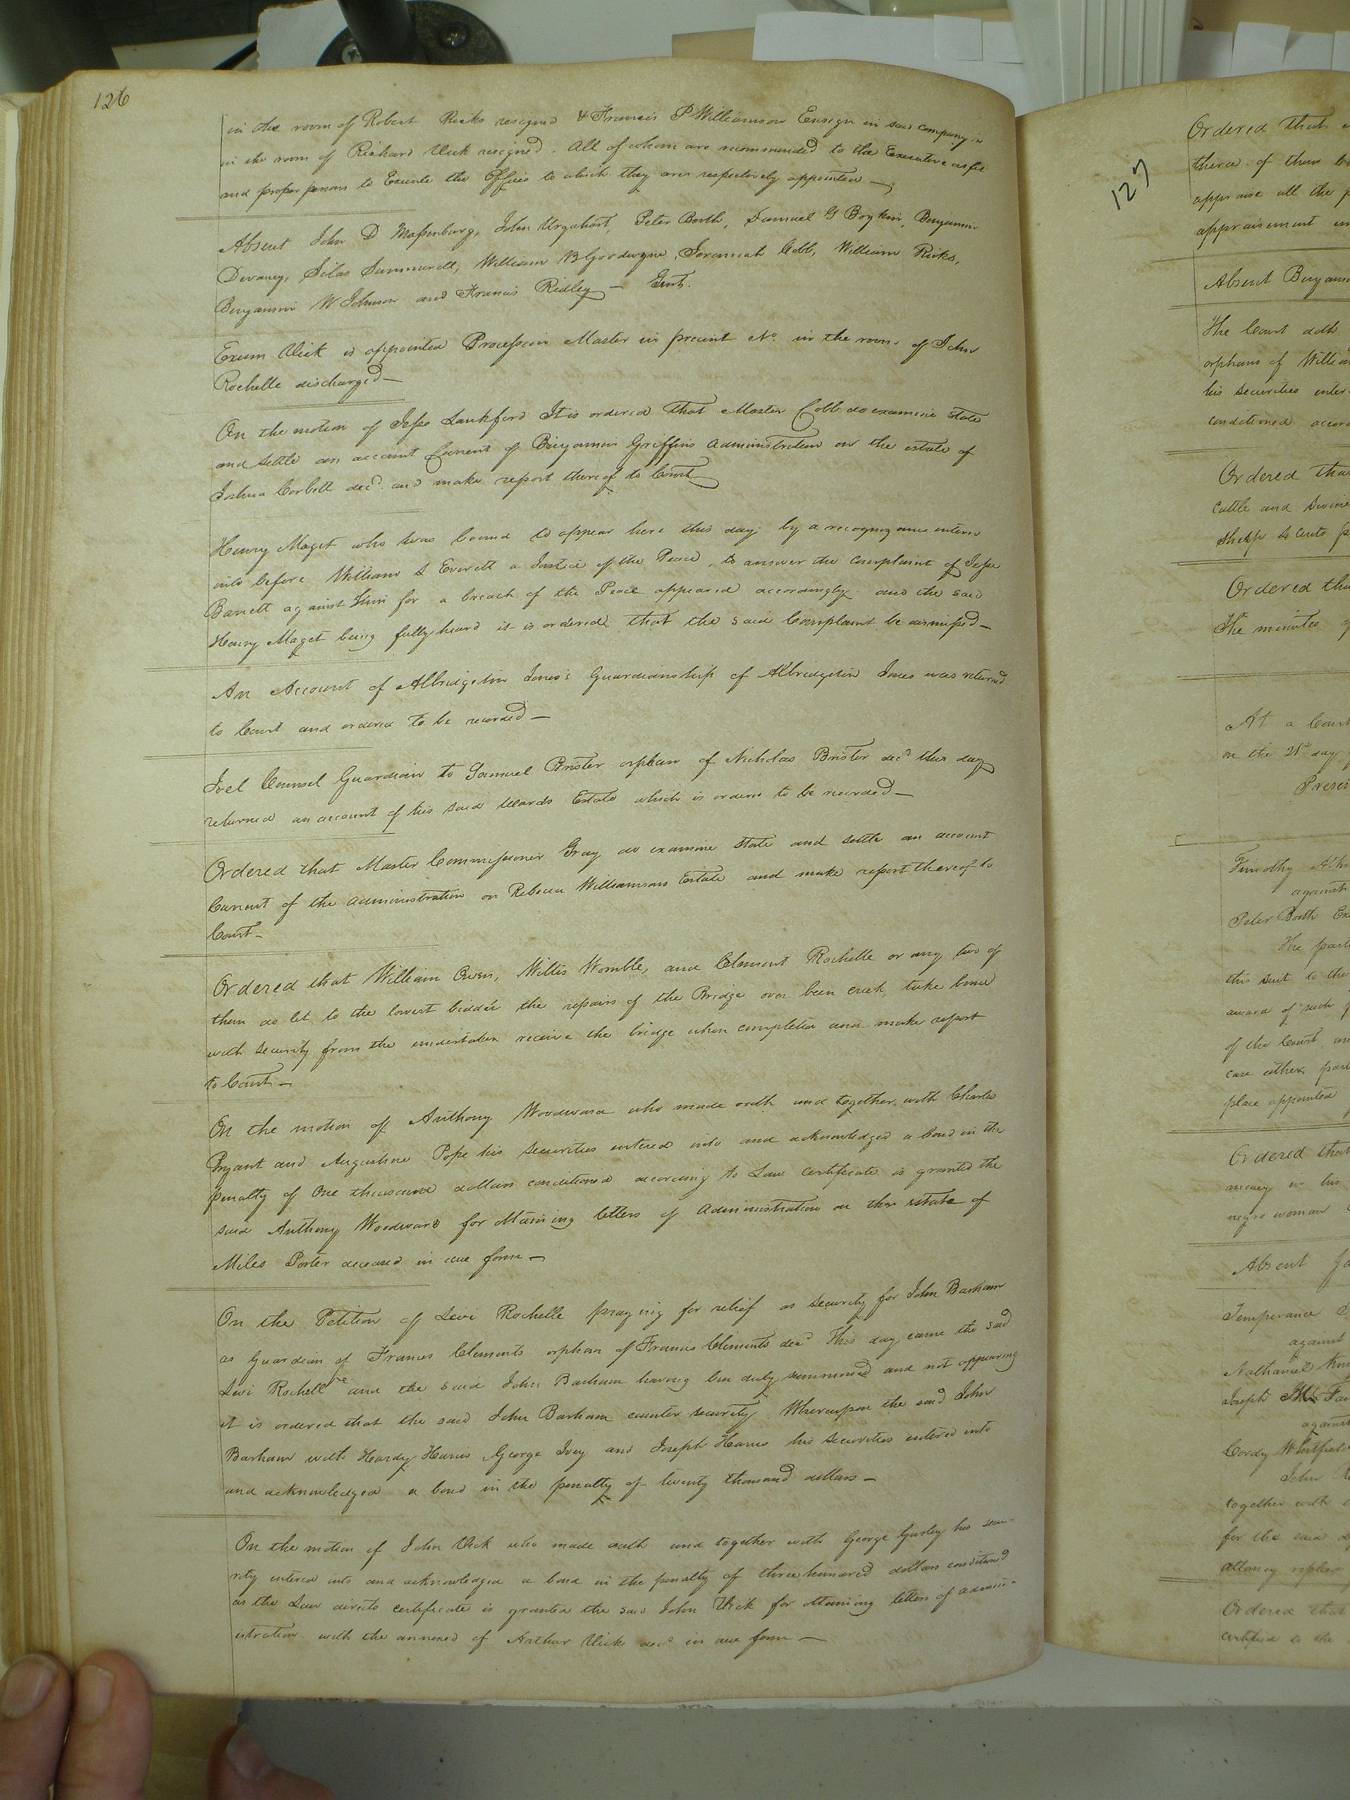 126
in the room of Robert Ricks resigned & Francis P Williamson Ensign in said company
in the room of Richard Vick resigned. All of whom are recommended to the Executive as fit
and proper persons to Execute the Offices to which they are respectively appointed —
Absent John D Massenburg, John Urquhart, Peter Booth, Samuel G Boykin, Benjamin
Devaney, Silas Summerell, William B Goodwyn, Jeremiah Cobb, William Ricks,
Benjamin W Johnson and Francis Ridley — Gent.
Exum Vick is appointed Procession Master in precinct No. in the room of John
Rochelle discharged —
On the motion of Jesse Lankford It is ordered that Master Cobb do examine state
and settle an account Current of Benjamin Griffins Administration on the estate of
Joshua Corbett decd. and make report thereof to Court
Henry Maget who was bound to appear here this day by a recognizance entered
into before William S Everett a Justice of the Peace, to answer the complaint of Jesse
Barrett against Him for a breach of the Peace appeared accordingly and the said
Henry Maget being fully heard it is ordered that the said Complaint be dismissed —
An Account of Albridgeton Jones's Guardianship of Albridgeton Jones was returned
to Court and ordered to be recorded —
Joel Counsel Guardian to Samuel Brister orphan of Nicholas Brister decd. this day
returned an account of his said Wards Estate which is ordered to be recorded —
Ordered that Master Commissioner Gray do examine state and settle an account
Current of the administration on Rebecca Williamsons Estate and make report thereof to
Court —
Ordered that William Owen, Willis Womble, and Clement Rochelle or any two of
them do let to the lowest bidder the repairs of the Bridge over creek, take bond
with security from the undertaker receive the bridge when completed and make report
to Court —
On the motion of Anthony Woodward who made oath and together with Charles
Bryant and Augustine Pope his securities entered into and acknowledged a bond in the
penalty of One thousand dollars conditioned according to Law certificate is granted the
said Anthony Woodward for obtaining letters of Administration on the estate of
Miles Porter deceased in due form —
On the Petition of Levi Rochelle praying for relief as security for John Barham
as Guardian of Frances Clements orphan of Francis Clements decd This day came the said
Levi Rochelle and the said John Barham having been duly summoned and not appearing
it is ordered that the said John Barham counter security Whereupon the said John
Barham with Hardy Harris George Ivey and Joseph Harris his securities entered into
and acknowledged a bond in the penalty of twenty thousand dollars —
On the motion of John Vick who made oath and together with George Gurley his secu-
rity entered into and acknowledged a bond in the penalty of three hundred dollars conditioned
as the Law directs certificate is granted the said John Vick for obtaining letters of admin-
istration with the annexed of Arthur Vick decd. in due form —
127
Ordered that
three of them
appraise all the
appraisement
Absent Benjamin
The Court doth
orphans of William
his securities enter
conditioned accord
Ordered that
cattle and
Ordered that
The minutes
At a Court
on the 21st day
Present
Timothy
against
Peter Booth
The part
this suit to the
award of such
of the Court
case either part
place appointed
Ordered that
money in his
negro woman
Absent
Temperance
against
Nathaniel
Joseph
against
Cordy
John
together with
for the said
attorney
Ordered that
certified to the